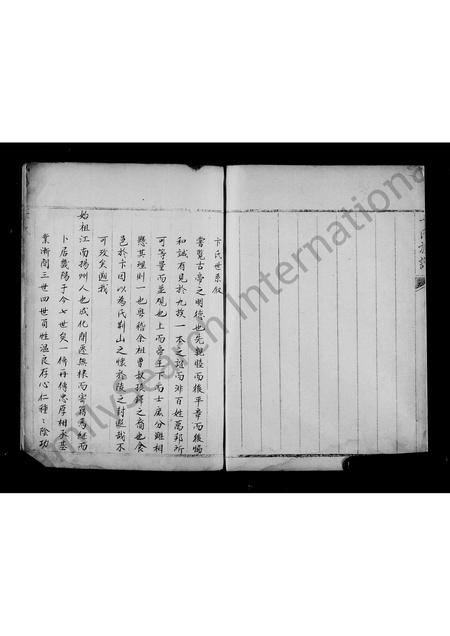 卞氏世系叙
嘗覽古帝之明德也先親睦而後平章而後協
和誠有見於九族一本之誼而非百姓萬邦所
可等量而並視也上而帝王下而士庶分雖相
懸其理則一也粤稽余祖曹叔振鐸之裔也食
邑於卞因以為氏荆山之懷
之封遐哉不
可攷矣溯我
始祖江南揚州人也成化間遷
而寄籍焉繼而
卜居襄陽于今七世矣一傳再傳忠厚相承基
業漸開三世四世員姓溫良存心仁種〻陰功
氏族譜
FamilySearch International